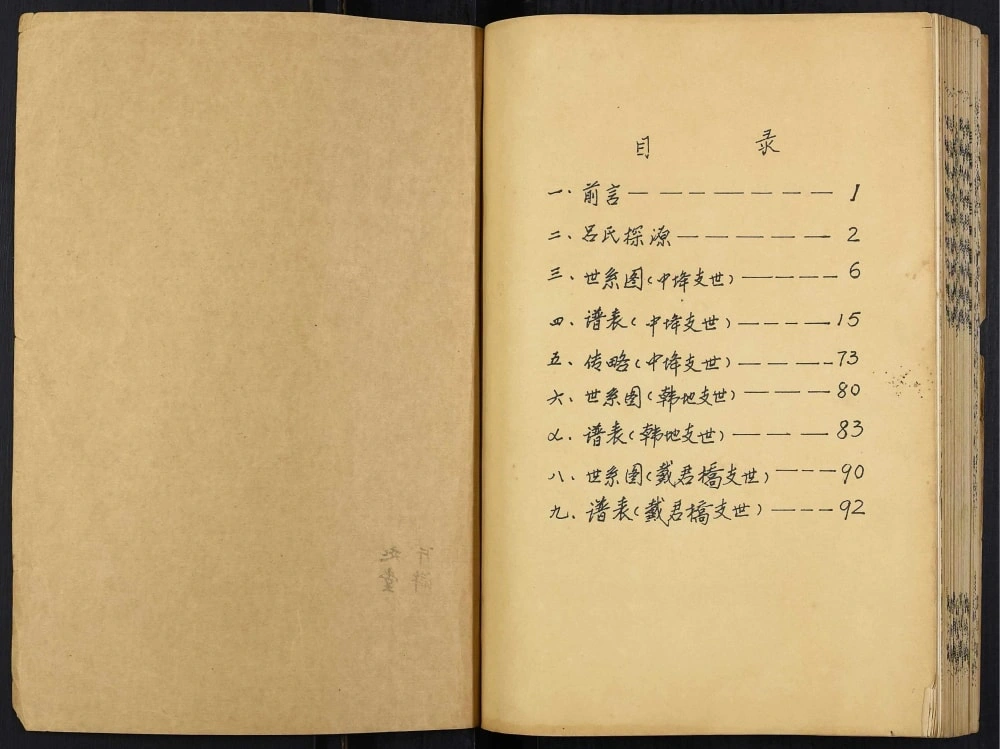 目 录
一、前言—— — — — — —1
二、吕氏探源— — — — —2
三、世系图(中埄支世)— — — —6
四、谱表(中埄支世)— — — —15
五、传略(中埄支世)— — — —73
六、世系图(韩地支世)— — —80
七、谱表(韩地支世)— — —83
八、世系图(戴君橋支世)— — —90
九、谱表(戴君橋支世)— — —92